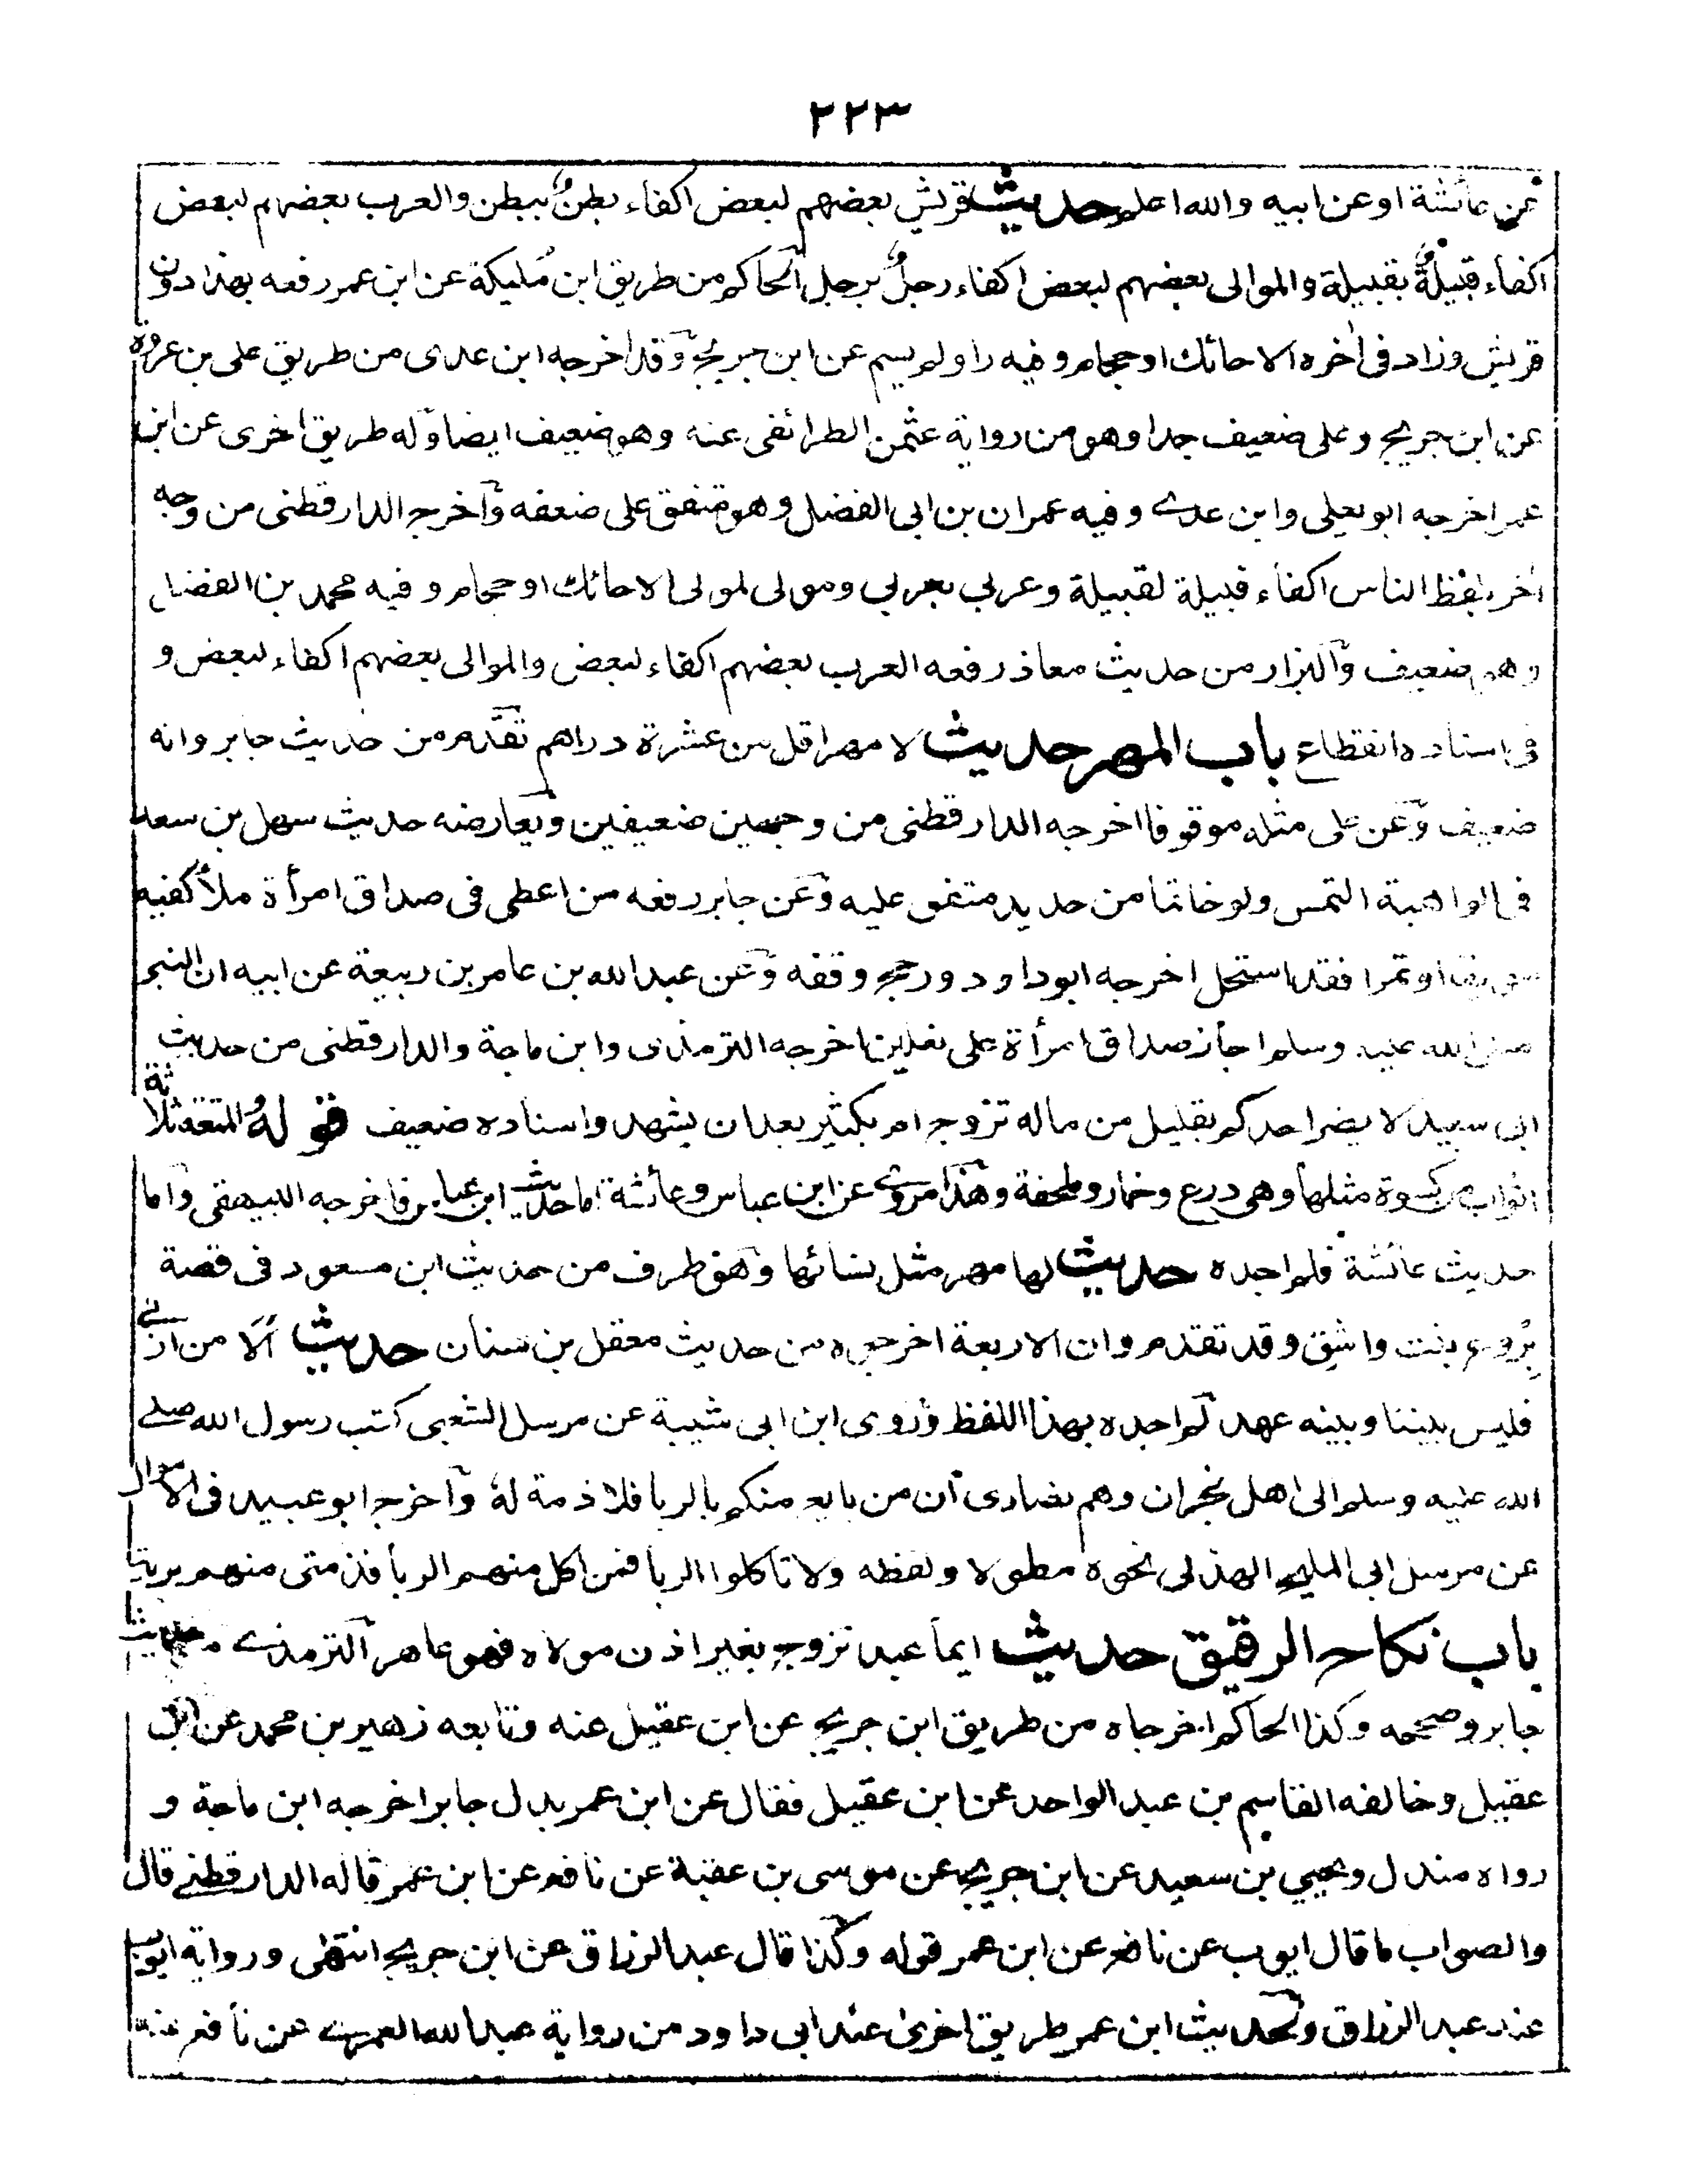 ٢٢٣
عن عائشة او عن ابيه والله اعلم حديث قريش بعضهم لبعض اكفاء بطنٌ ببطن والعرب بعضهم لبعض
اكفاء قبيلةٌ بقبيلة والموالى بعضهم لبعض اكفاء رجلٌ برجل الحاكم من طريق ابن مُليكة عن ابن عمر رفعه بهذا دون
قريش وزاد فى اخره الا حائك او حجام وفيه راو لم يسم عن ابن جريج وقد اخرجه ابن عدى من طريق على بن عروة
عن ابن جريج وعلى ضعيف جدا وهو من رواية عثمن الطرائفى عنه وهو ضعيف ايضا وله طريق اخرى عن ابن
عمر اخرجه ابو يعلى وابن عدے وفيه عمران بن ابى الفضل وهو متفق على ضعفه واخرجه الدارقطنى من وجه
اخر بلفظ الناس اكفاء قبيلة لقبيلة وعربى بعربى ومولى لمولى الا حائك او حجام وفيه محمد بن الفضل
وهو ضعيف والبزار من حديث معاذ رفعه العرب بعضهم اكفاء لبعض والموالى بعضهم اكفاء لبعض و
فى اسناده انقطاع باب المهر حديث لا مهر اقل من عشرة دراهم تقَدم من حديث جابر وانه
ضعيف وعن على مثله موقوفا اخرجه الدارقطنى من وجهين ضعيفين ويعارضه حديث سهل بن سعد
فى الواهبة التمس ولو خاتما من حديد متفق عليه وعن جابر رفعه من اعطى فى صداق امرأة ملأ كفيه
سويقا او تمرا فقد استحل اخرجه ابو داود ورجح وقفه وعن عبد الله بن عامر بن ربيعة عن ابيه ان النبى
صلى الله عليه وسلم اجاز صداق امرأة على نعلين اخرجه الترمذى وابن ماجة والدارقطنى من حديث
ابى سعيد لا يضر احدكم بقليل من ماله تزوج ام بكثير بعد ان يشهد واسناده ضعيف قولهُ المتعة ثلاثة
اثواب من كسوة مثلها وهى درع وخمار وملحفة وهذا مروى عن ابن عباس وعائشة اما حديث ابن عباس فاخرجه البيهقى واما
حديث عائشة فلم اجده حديث لها مهر مثل نسائها وهو طرف من حديث ابن مسعود فى قصة
بِرْوع بنت واشق وقد تقدم وان الاربعة اخرجوه من حديث معقل بن سنان حديث الَا من اربى
فليس بيننا وبينه عهد لم اجده بهذا اللفظ وروى ابن ابى شيبة عن مرسل الشعبى كتب رسول الله صلے
الله عليه وسلم الى اهل نجران وهم نصارى ان من بايع منكم بالربا فلا ذمة لهُ واخرجه ابو عبيد فى الاموال
عن مرسل ابى المليح الهذلى نحوه مطولا ولفظه ولا تاكلوا الربا فمن اكل منهم الربا فذمتى منهم بريئة
باب نكاح الرقيق حديث ايما عبد تزوج بغير اذن مولاه فهو عاهر الترمذے من حديث
جابر وصححه وكذا الحاكم اخرجاه من طريق ابن جريج عن ابن عقيل عنه وتابعه زهير بن محمد عن ابن
عقيل وخالفه القاسم بن عبد الواحد عن ابن عقيل فقال عن ابن عمر بدل جابر اخرجه ابن ماجة و
رواه مندل ويحيى بن سعيد عن ابن جريج عن موسى بن عقبة عن نافع عن ابن عمر قاله الدارقطنے قال
والصواب ما قال ايوب عن نافع عن ابن عمر قوله وكذا قال عبد الرزاق عن ابن جريج انتهى ورواية ايوب
عند عبد الرزاق ولحديث ابن عمر طريق اخرى عند ابى داود من رواية عبد الله العمرے عن نافع عنه